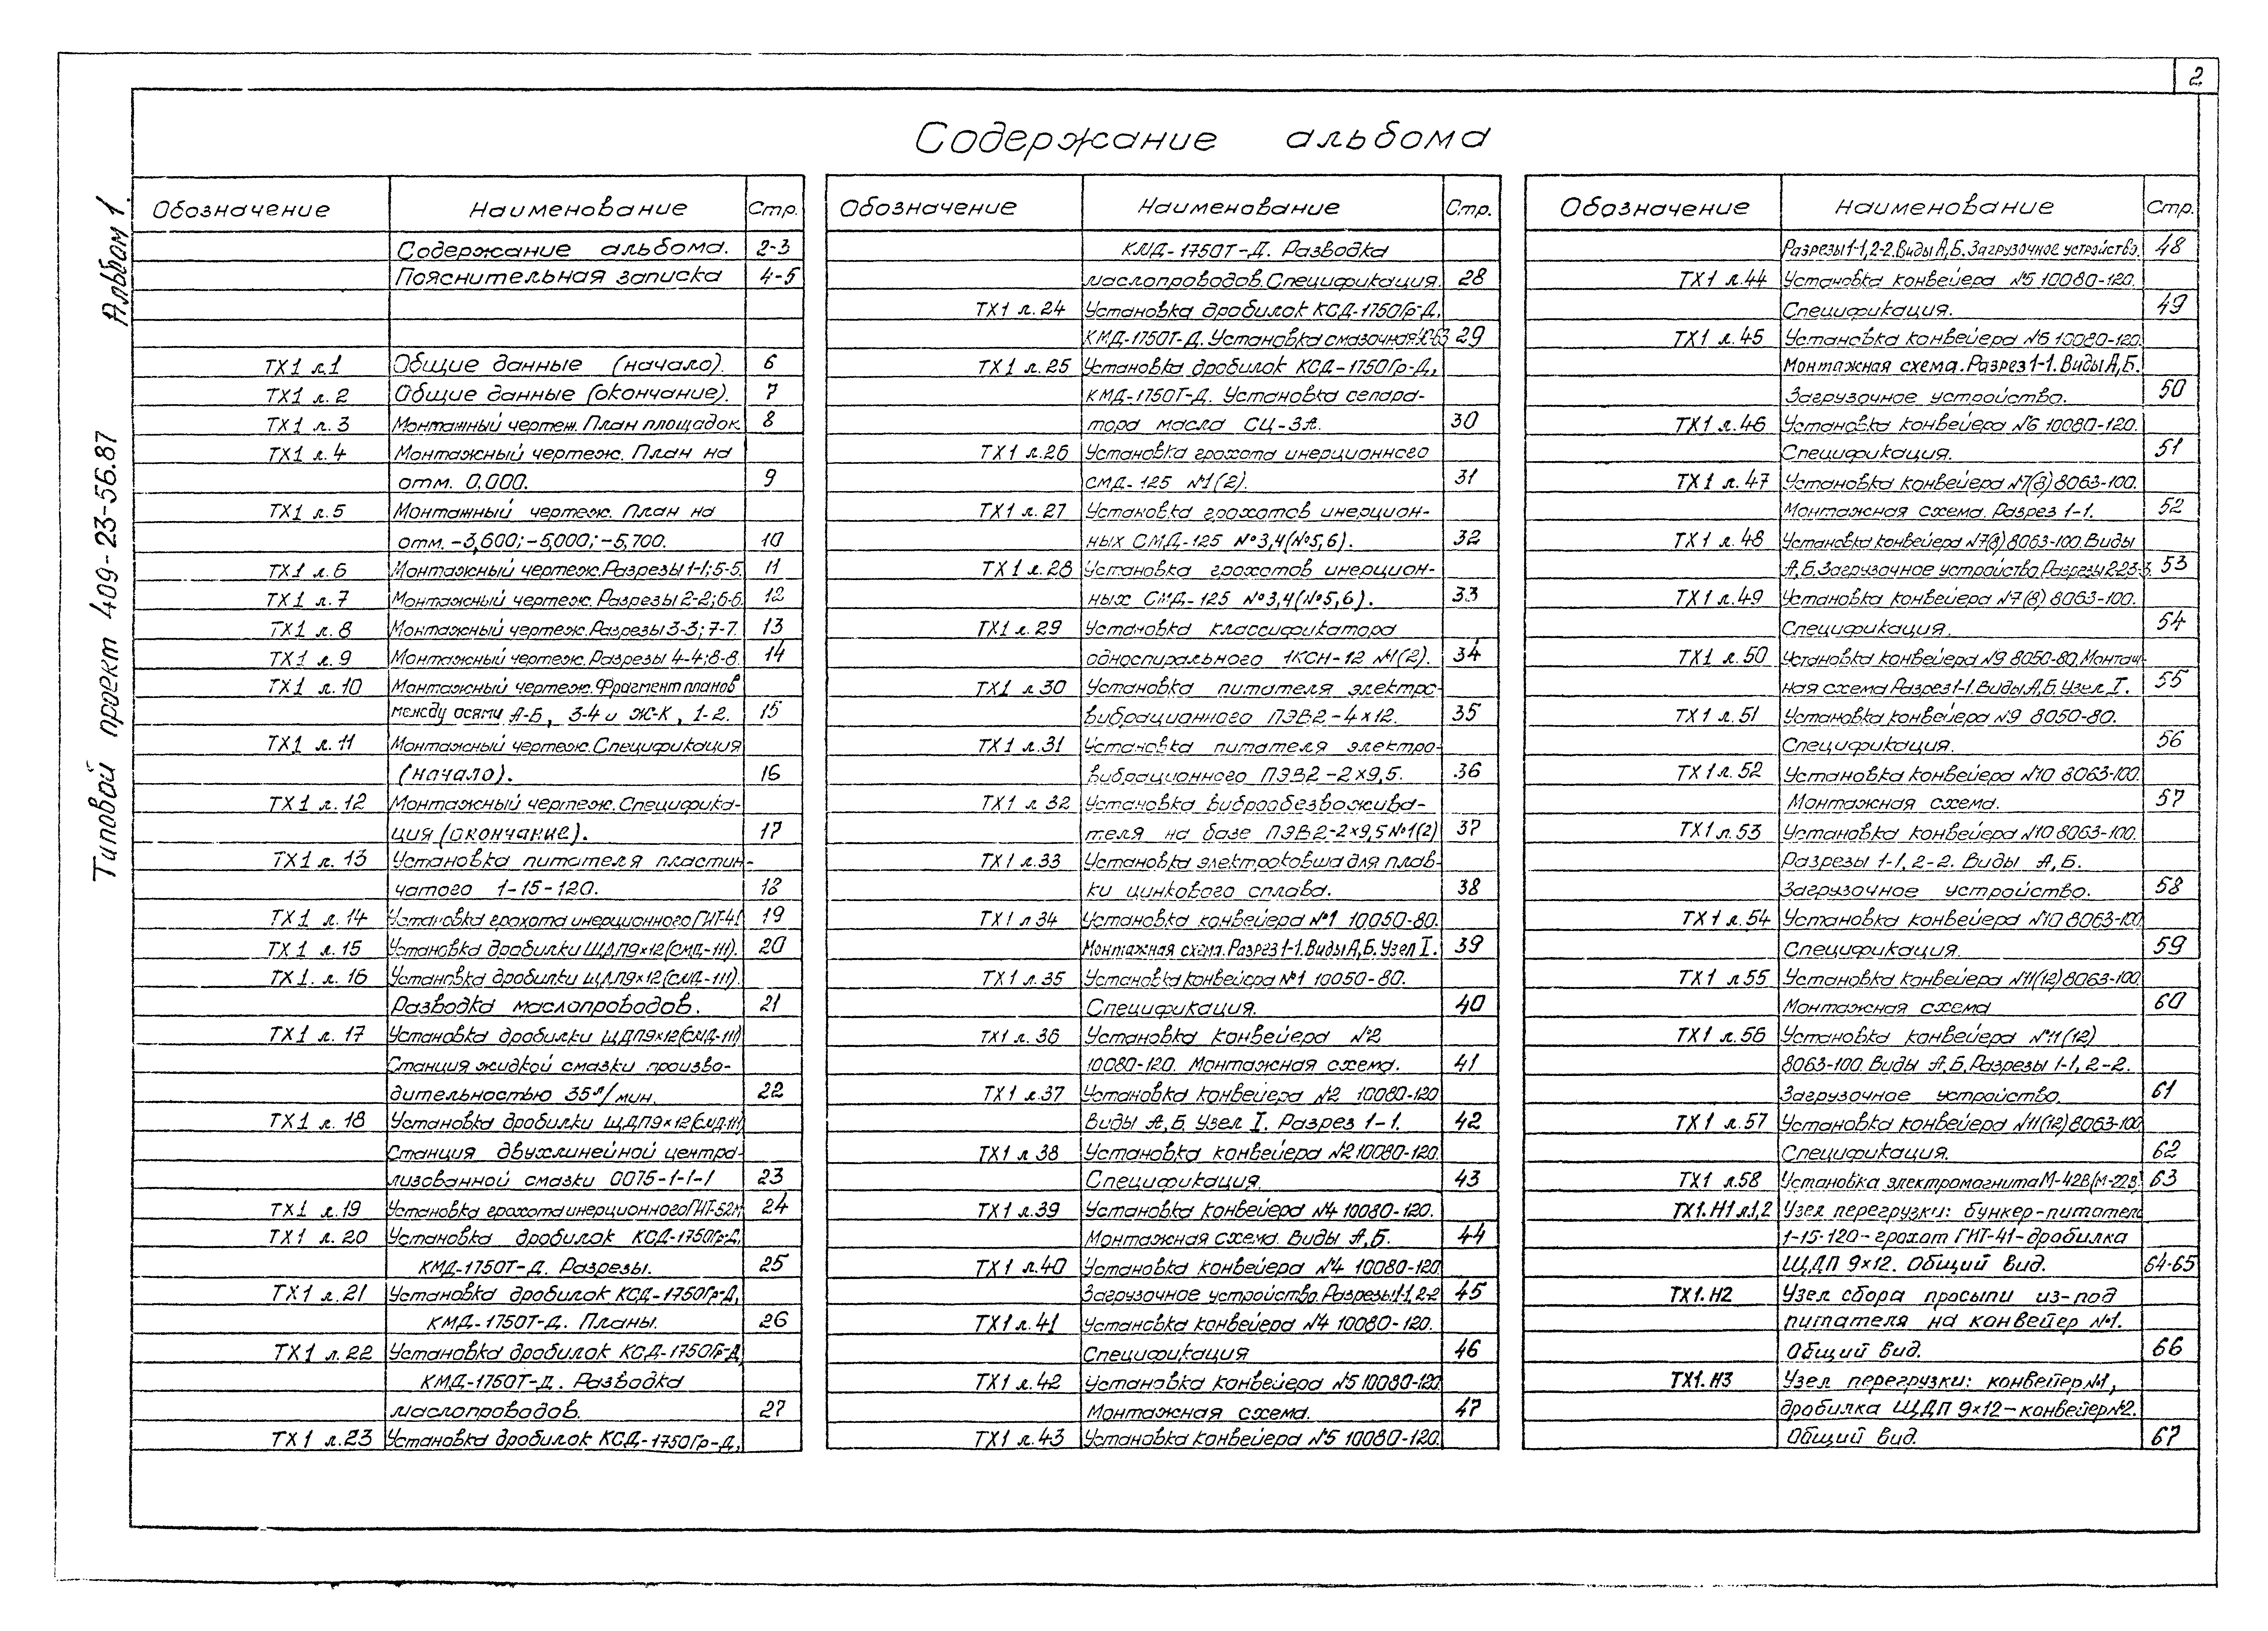 2
Содержание альбома
Альбом 1.
Типовой проект 409-23-56.87
Обозначение Наименование Стр.
Содержание альбома. 2-3
Пояснительная записка 4-5
ТХ1 л.1 Общие данные (начало). 6
ТХ1 л. 2 Общие данные (окончание). 7
ТХ1 л. 3 Монтажный чертеж. План площадок 8
ТХ1 л. 4 Монтажный чертеж. План на
отм. 0,000. 9
ТХ1 л. 5 Монтажный чертеж. План на
отм. -3,600; -5,000; -5,700. 10
ТХ1 л. 6 Монтажный чертеж. Разрезы 1-1; 5-5. 11
ТХ1 л. 7 Монтажный чертеж. Разрезы 2-2; 6-6. 12
ТХ1 л. 8 Монтажный чертеж. Разрезы 3-3; 7-7. 13
ТХ1 л. 9 Монтажный чертеж. Разрезы 4-4; 8-8. 14
ТХ1 л. 10 Монтажный чертеж. Фрагмент планов
между осями А-Б, 3-4 и Ж-К, 1-2. 15
ТХ1 л. 11 Монтажный чертеж. Спецификация
(начало). 16
ТХ1 л. 12 Монтажный чертеж. Специфика-
ция (окончание). 17
ТХ1 л. 13 Установка питателя пластин-
чатого 1-15-120. 18
ТХ1 л. 14 Установка грохота инерционного ГИТ-41 19
ТХ1 л. 15 Установка дробилки ЩДП9х12(СМД-111). 20
ТХ1. л. 16 Установка дробилки ЩДП9х12(СМД-111).
Разводка маслопроводов. 21
ТХ1 л. 17 Установка дробилки ЩДП9х12(СМД-111)
Станция жидкой смазки произво-
дительностью 35л/мин. 22
ТХ1 л. 18 Установка дробилки ЩДП9х12(СМД-111)
Станция двухлинейной центра-
лизованной смазки 0075-1-1-1 23
ТХ1 л. 19 Установка грохота инерционного ГИТ-52М 24
ТХ1 л. 20 Установка дробилок КСД-1750Гр-Д,
КМД-1750Т-Д. Разрезы. 25
ТХ1 л. 21 Установка дробилок КСД-1750Гр-Д,
КМД-1750Т-Д. Планы. 26
ТХ1 л. 22 Установка дробилок КСД-1750Гр-Д
КМД-1750Т-Д. Разводка
маслопроводов. 27
ТХ1 л. 23 Установка дробилок КСД-1750Гр-Д,
Обозначение Наименование Стр.
КМД-1750Т-Д. Разводка
маслопроводов. Спецификация. 28
ТХ1 л. 24 Установка дробилок КСД-1750Гр-Д,
КМД-1750Т-Д. Установка смазочная 29
ТХ1 л. 25 Установка дробилок КСД-1750Гр-Д,
КМД-1750Т-Д. Установка сепара-
тора масла СЦ-3А. 30
ТХ1 л.26 Установка грохота инерционного
СМД-125 №1(2). 31
ТХ1 л. 27 Установка грохотов инерцион-
ных СМД-125 №3,4(№5,6). 32
ТХ1 л.28 Установка грохотов инерцион-
ных СМД-125 №3,4(№5,6). 33
ТХ1 л. 29 Установка классификатора
односпирального 1КСН-12 №1(2). 34
ТХ1 л 30 Установка питателя электро-
вибрационного ПЭВ2-4х12. 35
ТХ1 л.31 Установка питателя электро-
вибрационного ПЭВ2-2х9,5. 36
ТХ1 л 32 Установка виброобезвожива-
теля на базе ПЭВ2-2х9,5 №1(2) 37
ТХ1 л.33 Установка электроковша для плав-
ки цинкового сплава. 38
ТХ1 л 34 Установка конвейера №1 10050-80.
Монтажная схема. Разрез 1-1. Виды А,Б. Узел I. 39
ТХ1 л. 35 Установка конвейера №1 10050-80.
Спецификация. 40
ТХ1 л. 36 Установка конвейера №2
10080-120. Монтажная схема. 41
ТХ1 л.37 Установка конвейера №2 10080-120
Виды А,Б. Узел I. Разрез 1-1. 42
ТХ1 л 38 Установка конвейера №2 10080-120.
Спецификация. 43
ТХ1 л.39 Установка конвейера №4 10080-120.
Монтажная схема. Виды А,Б. 44
ТХ1 л.40 Установка конвейера №4 10080-120
Загрузочное устройство. Разрезы 1-1, 2-2 45
ТХ1 л. 41 Установка конвейера №4 10080-120.
Спецификация 46
ТХ1 л. 42 Установка конвейера №5 10080-120
Монтажная схема. 47
ТХ1 л. 43 Установка конвейера №5 10080-120.
Обозначение Наименование Стр.
Разрезы 1-1, 2-2. Виды А,Б. Загрузочное устройство. 48
ТХ1 л. 44 Установка конвейера №5 10080-120.
Спецификация. 49
ТХ1 л. 45 Установка конвейера №6 10080-120.
Монтажная схема. Разрез 1-1. Виды А,Б.
Загрузочное устройство. 50
ТХ1 л. 46 Установка конвейера №6 10080-120.
Спецификация. 51
ТХ1 л. 47 Установка конвейера №7(8) 8063-100.
Монтажная схема. Разрез 1-1. 52
ТХ1 л. 48 Установка конвейера №7(8) 8063-100. Виды
А,Б. Загрузочное устройство. Разрезы 2-2 3-3. 53
ТХ1 л. 49 Установка конвейера №7(8) 8063-100.
Спецификация. 54
ТХ1 л. 50 Установка конвейера №9 8050-80. Монтаж-
ная схема Разрез 1-1. Виды А,Б. Узел I. 55
ТХ1 л. 51 Установка конвейера №9 8050-80.
Спецификация. 56
ТХ1 л. 52 Установка конвейера №10 8063-100.
Монтажная схема. 57
ТХ1 л. 53 Установка конвейера №10 8063-100.
Разрезы 1-1, 2-2. Виды А,Б.
Загрузочное устройство. 58
ТХ1 л. 54 Установка конвейера №10 8063-100
Спецификация. 59
ТХ1 л. 55 Установка конвейера №11(12) 8063-100.
Монтажная схема 60
ТХ1 л. 56 Установка конвейера №11(12)
8063-100. Виды А,Б. Разрезы 1-1, 2-2.
Загрузочное устройство. 61
ТХ1 л. 57 Установка конвейера №11(12) 8063-100
Спецификация. 62
ТХ1 л.58 Установка электромагнита М-42В(М-22В) 63
ТХ1.Н1 л.1,2 Узел перегрузки: бункер-питатель
1-15-120-грохот ГИТ-41-дробилка
ЩДП 9х12. Общий вид. 64-65
ТХ1.Н2 Узел сбора просыпи из-под
питателя на конвейер №1.
Общий вид. 66
ТХ1.Н3 Узел перегрузки: конвейер №1,
дробилка ЩДП 9х12-конвейер №2.
Общий вид. 67